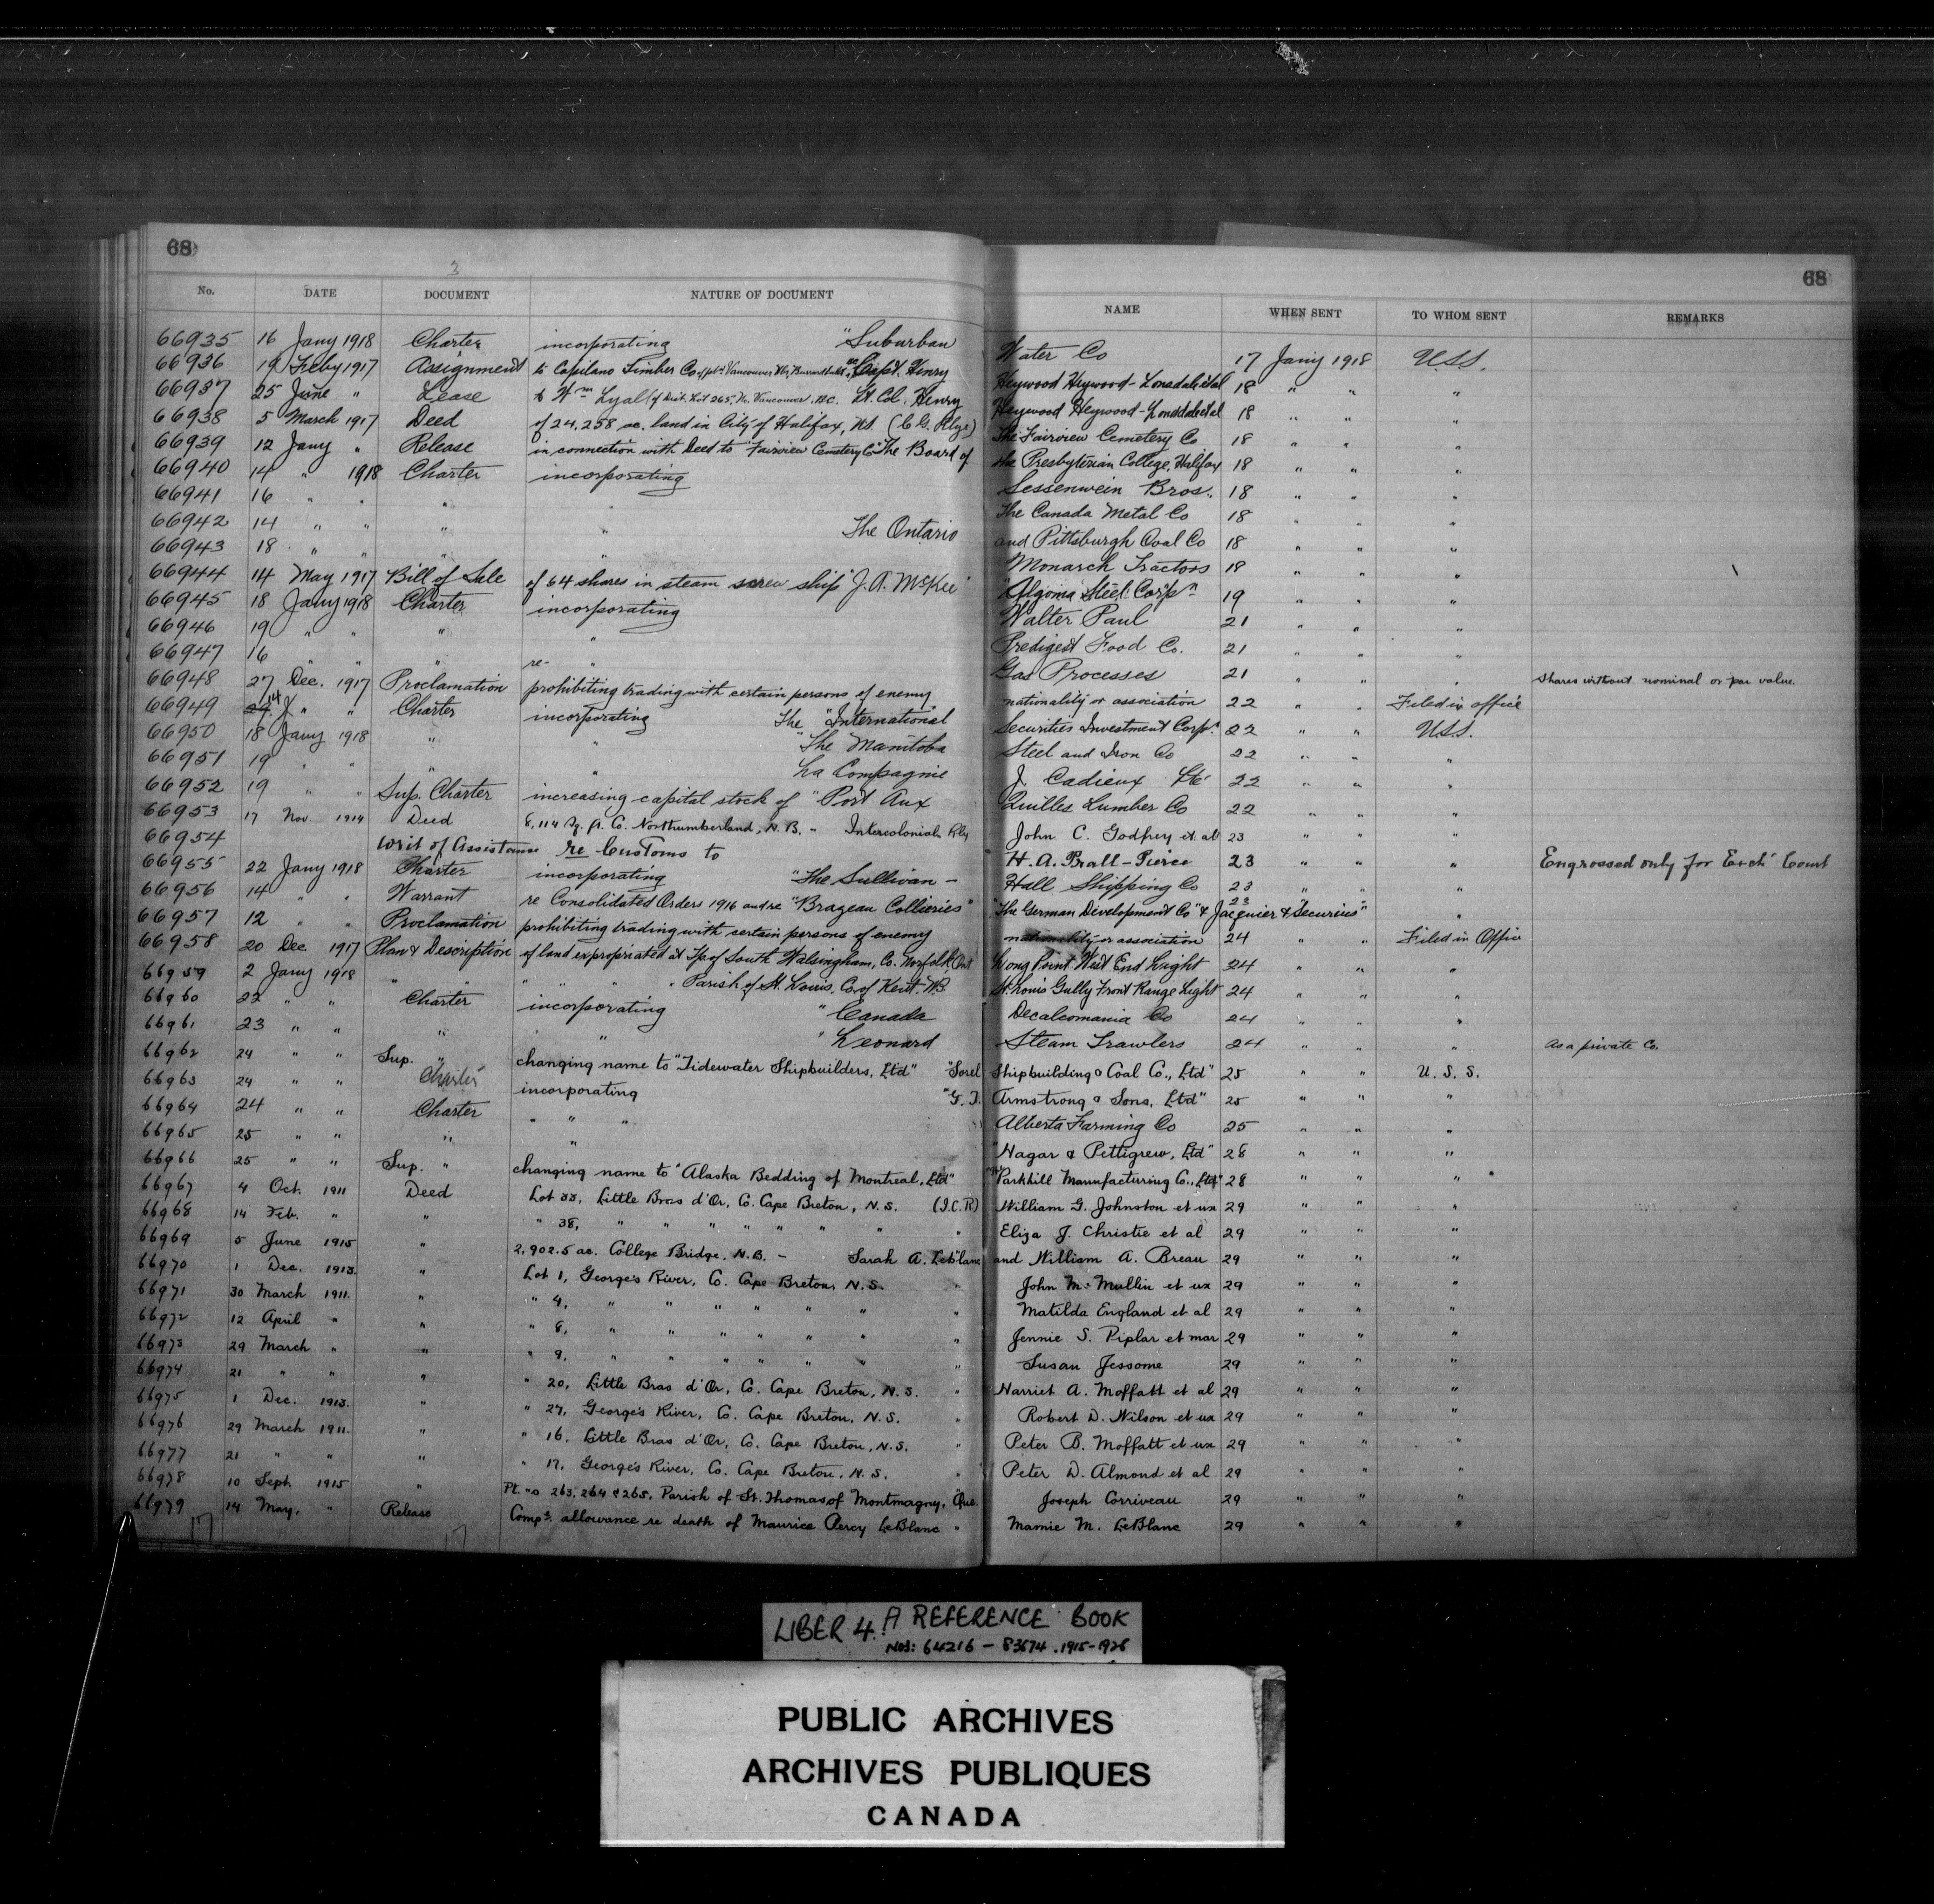 68 68
3
No. DATE DOCUMENT NATURE OF DOCUMENT NAME WHEN SENT TO WHOM SENT REMARKS
66935 16 Jany 1918 Charter incorporating "Suburban Water Co 17 Jany 1918 U.S.S.
66936 19 Feby 1917 Assignment to Capilano Timber Co Capt. Henry Heywood Heywood-Lonsdale et al 18 " " "
66937 25 June " Lease to Wm Lyall of Dist. Lot 265, N. Vancouver, B.C. Lt. Col. Henry Heywood Heywood-Lonsdale et al 18 " " "
66938 5 March 1917 Deed of 24,258 ac. land in City of Halifax, N.S. (C.G. Rlys) The Fairview Cemetery Co 18 " " "
66939 12 Jany " Release in connection with Deed to "Fairview Cemetery Co" The Board of the Presbyterian College, Halifax 18 " " "
66940 14 " 1918 Charter incorporating Sessenwein Bros. 18 " " "
66941 16 " " " " The Canada Metal Co 18 " " "
66942 14 " " " " The Ontario and Pittsburgh Oval Co 18 " " "
66943 18 " " " " Monarch Tractors 18 " " "
66944 14 May 1917 Bill of Sale of 64 shares in steam screw ship "J. A. McKee" "Algoma Steel Corpn 19 " " "
66945 18 Jany 1918 Charter incorporating Walter Paul 21 " " "
66946 19 " " " " Predigest Food Co. 21 " " "
66947 16 " " " re- " Gas Processes 21 " " " Shares without nominal or par value.
66948 27 Dec. 1917 Proclamation prohibiting trading with certain persons of enemy nationality or association 22 " " Filed in office
66949 14 " " Charter incorporating The "International Securities Investment Corpn 22 " " U.S.S.
66950 18 Jany 1918 " " "The Manitoba Steel and Iron Co 22 " " "
66951 19 " " " " La Compagnie J. Cadieux Lte 22 " " "
66952 19 " " Sup. Charter increasing capital stock of "Port Aux Quilles Lumber Co 22 " " "
66953 17 Nov. 1914 Deed 8,114 Sq. ft. Co. Northumberland, N.B. - Intercolonial Rly John C. Godfrey et al 23 " " "
66954 Writ of Assistance re Customs to H. A. Brall-Pierce 23 " " " Engrossed only for Exch. Court
66955 22 Jany 1918 Charter incorporating "The Sullivan - Hall Shipping Co 23 " " "
66956 14 " " Warrant re Consolidated Orders 1916 and re "Brazeau Collieries" "The German Development Co" & Jacquier & Securius" 23 "
66957 12 " " Proclamation prohibiting trading with certain persons of enemy nationality or association 24 " " Filed in Office
66958 20 Dec. 1917 Plan & Description of land expropriated at Tp. of South Walsingham, Co. Norfolk, Ont Long Point West End Light 24 " " "
66959 2 Jany 1918 " " " " " " Parish of St. Louis, Co. of Kent, N.B. St. Louis Gully Front Range Light 24 " " "
66960 22 " " Charter incorporating "Canada Decalcomania Co 24 " " "
66961 23 " " " " "Leonard Steam Trawlers 24 " " " As a private Co.
66962 24 " " Sup. " changing name to "Tidewater Shipbuilders, Ltd" "Sorel Shipbuilding & Coal Co., Ltd" 25 " " U. S. S.
66963 24 " " Charter incorporating "G. T. Armstrong & Sons, Ltd" 25 " " "
66964 24 " " Charter " " " Alberta Farming Co 25 " " "
66965 25 " " " " "Hagar & Pettigrew, Ltd" 28 " " "
66966 25 " " Sup. " changing name to "Alaska Bedding of Montreal, Ltd" "Parkhill Manufacturing Co., Ltd" 28 " " "
66967 4 Oct. 1911 Deed Lot 33, Little Bras d'Or, Co. Cape Breton, N.S. (I.C.R) William G. Johnston et ux 29 " " "
66968 14 Feb. " " " 38, " " " " " " " Eliza J. Christie et al 29 " " "
66969 5 June 1915 " 2,902.5 ac. College Bridge, N.B. - Sarah A. LeBlanc and William A. Breau 29 " " "
66970 1 Dec. 1913. " Lot 1, George's River, Co. Cape Breton, N.S. " John McMullin et ux 29 " " "
66971 30 March 1911. " " 4, " " " " " " " Matilda England et al 29 " " "
66972 12 April " " " 8, " " " " " " " Jennie S. Piplar et mar 29 " " "
66973 29 March " " " 9, " " " " " " " Susan Jessome 29 " " "
66974 21 " " " " 20, Little Bras d'Or, Co. Cape Breton, N.S. " Harriet A. Moffatt et al 29 " " "
66975 1 Dec. 1913. " " 27, George's River, Co. Cape Breton, N.S. " Robert D. Wilson et ux 29 " " "
66976 29 March 1911. " " 16, Little Bras d'Or, Co. Cape Breton, N.S. " Peter B. Moffatt et ux 29 " " "
66977 21 " " " " 17, George's River, Co. Cape Breton, N.S. " Peter D. Almond et al 29 " " "
66978 10 Sept. 1915 " Pt. no 263, 264 & 265, Parish of St. Thomas of Montmagny, Que. Joseph Corriveau 29 " " "
66979 14 May, " Release Compn. allowance re death of Maurice Percy LeBlanc " Mamie M. LeBlanc 29 " " "
17 17
LIBER 4. A REFERENCE BOOK
NOS: 64216 - 83674. 1915-1928
PUBLIC ARCHIVES
ARCHIVES PUBLIQUES
CANADA